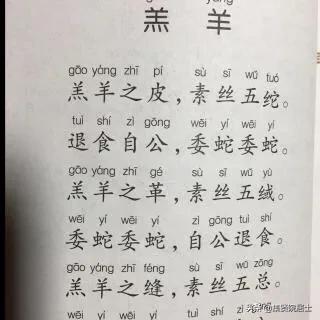 羔羊
gāo yáng zhī pí sù sī wǔ tuó
羔羊之皮，素丝五紽。
tuì shí zì gōng wēi yí wēi yí
退食自公，委蛇委蛇。
gāo yáng zhī gé sù sī wǔ yù
羔羊之革，素丝五緎。
wēi yí wēi yí zì gōng tuì shí
委蛇委蛇，自公退食。
gāo yáng zhī féng sù sī wǔ zōng
羔羊之缝，素丝五总。